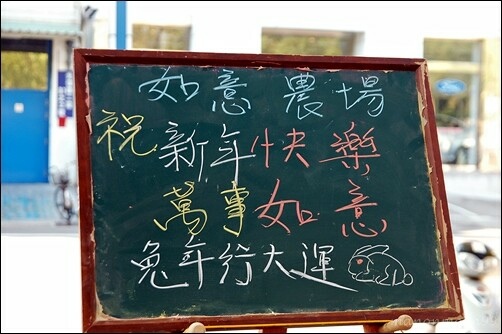 如意農場
祝新年快樂
萬事如意
兔年行大運
Ford